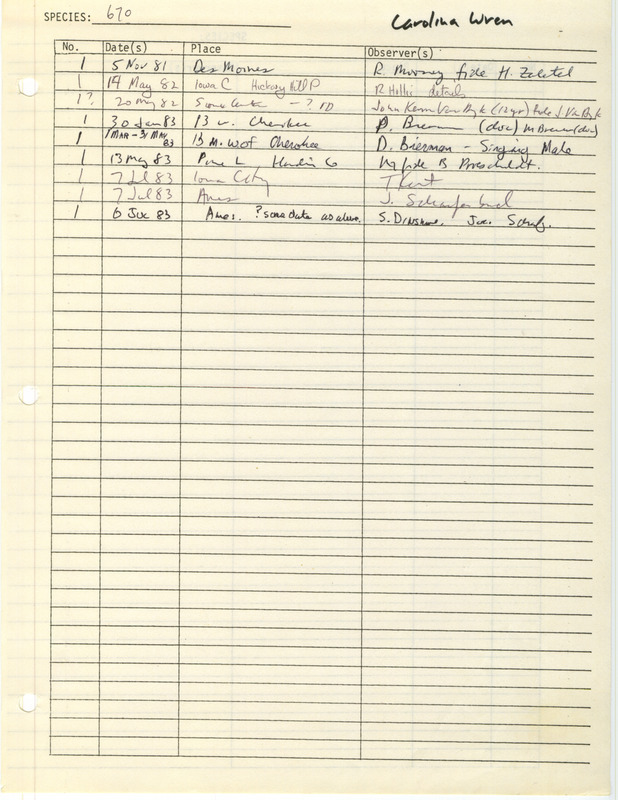 SPECIES: 670 Carolina Wren
No. Date(s) Place Observer(s)
1 5 Nov 81 Des Moines R. Mooney fide H. Zaletel
1 14 May 82 Iowa C Hickory Hill P R Hollis details
1? 20 May 82 - ? ID John (12yr) fide J. Van
1 30 Jan 83 13 Cherokee D. Bierman (doc) M Bierman (doc)
1 1 MAR - 31 MAY 83 13 M. W of Cherokee D. Bierman - Singing Male
1 13 May 83 Pine L Hardin Co fide B Proescholdt.
1 7 Jul 83 Iowa City T Kent
1 7 Jul 83 Ames J.
1 6 83 Ames. ? same date as above. S. Dinsmore, Jim